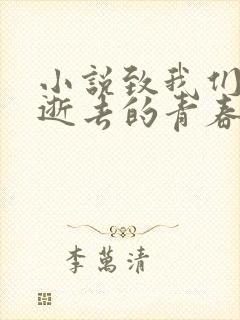 小説致我们
逝去的青春
李萬清